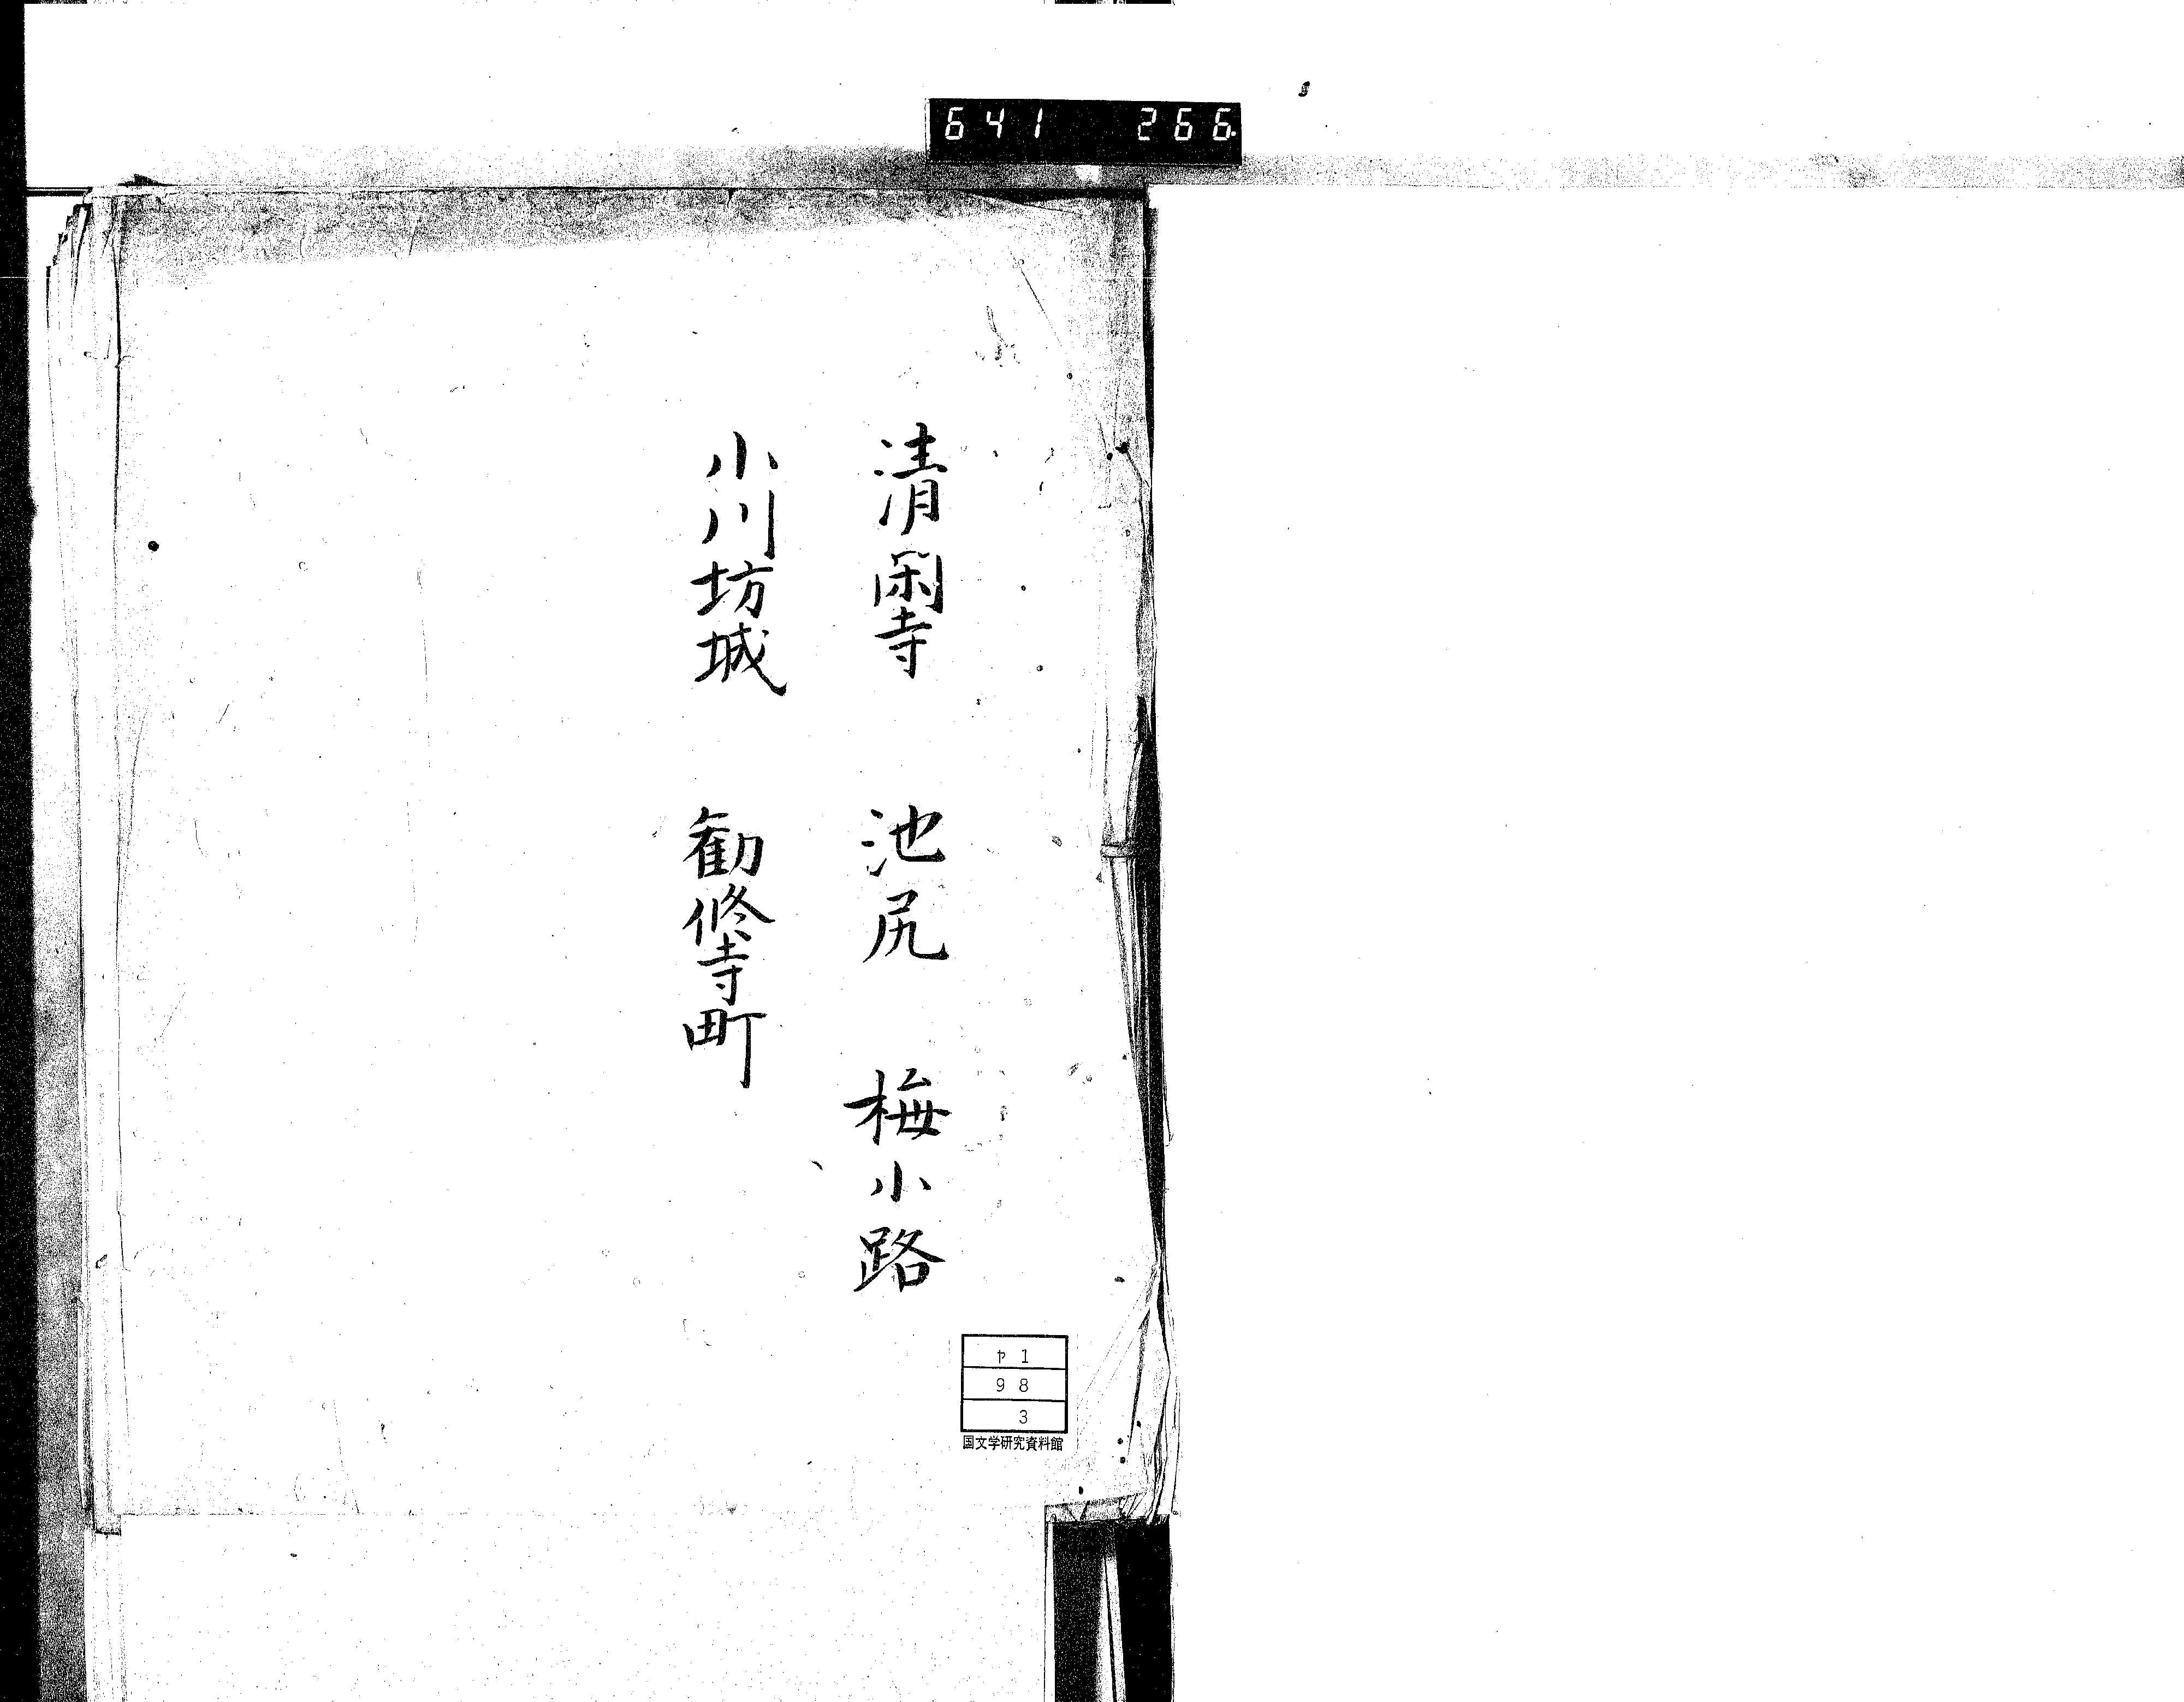 641 266
清閑寺 池尻 梅小路
小川坊城 勧修寺町
ヤ1
98
3
国文学研究資料館